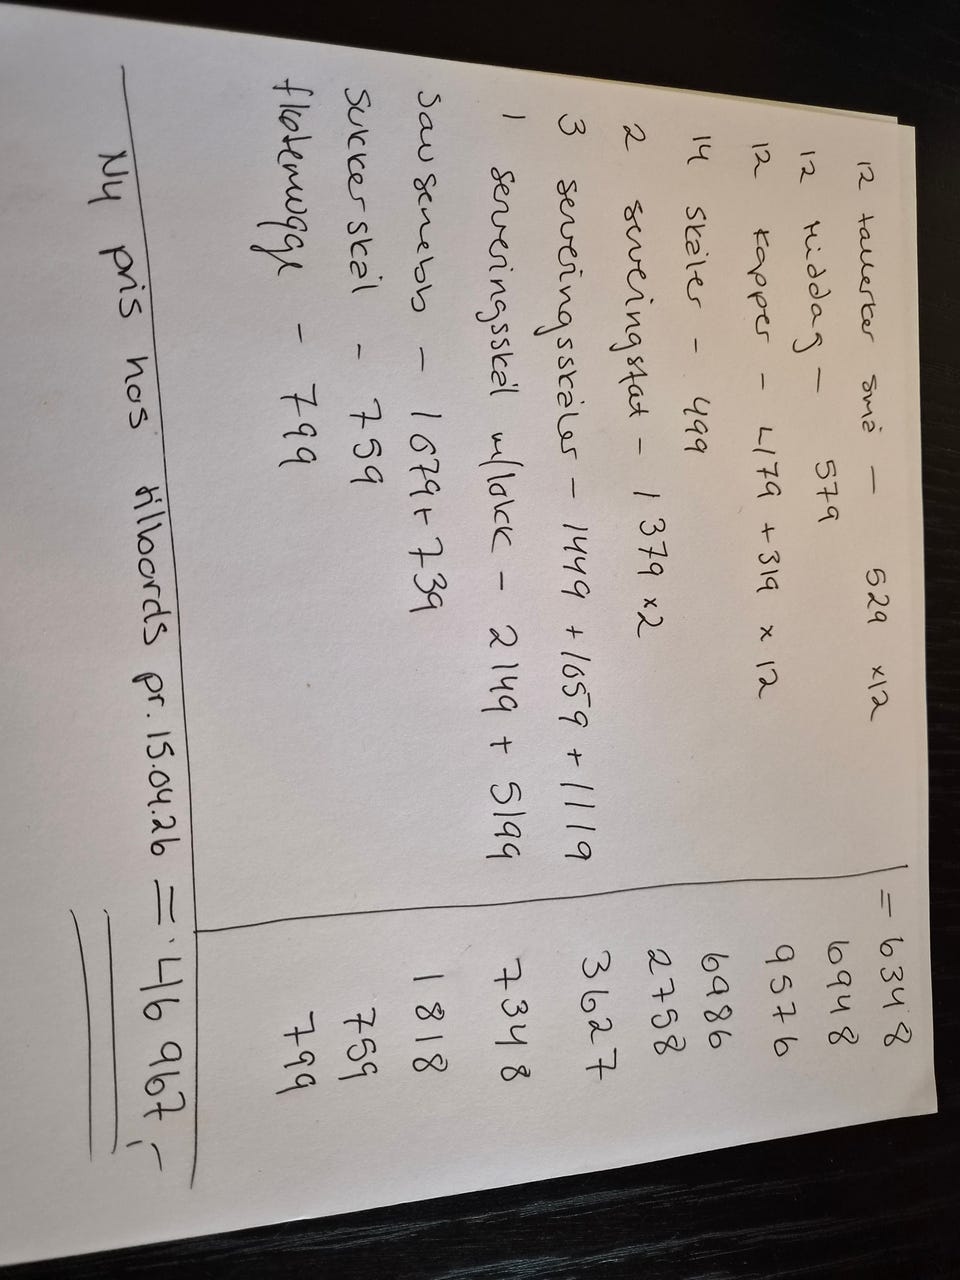 12 tallerker små - 529 x12 = 6348
12 Middag - 579 6948
12 kopper - 479 + 319 x 12 9576
14 skåler - 499 6986
2 serveringsfat - 1379 x2 2758
3 serveringsskåler - 1449 + 1059 + 1119 3627
1 serveringsskål m/lokk - 2149 + 5199 7348
Sausenebb - 1079 + 739 1818
Sukkerskål - 759 759
fløtemugge - 799 799
Ny pris hos tilbords pr. 15.04.26 = 46 967,-